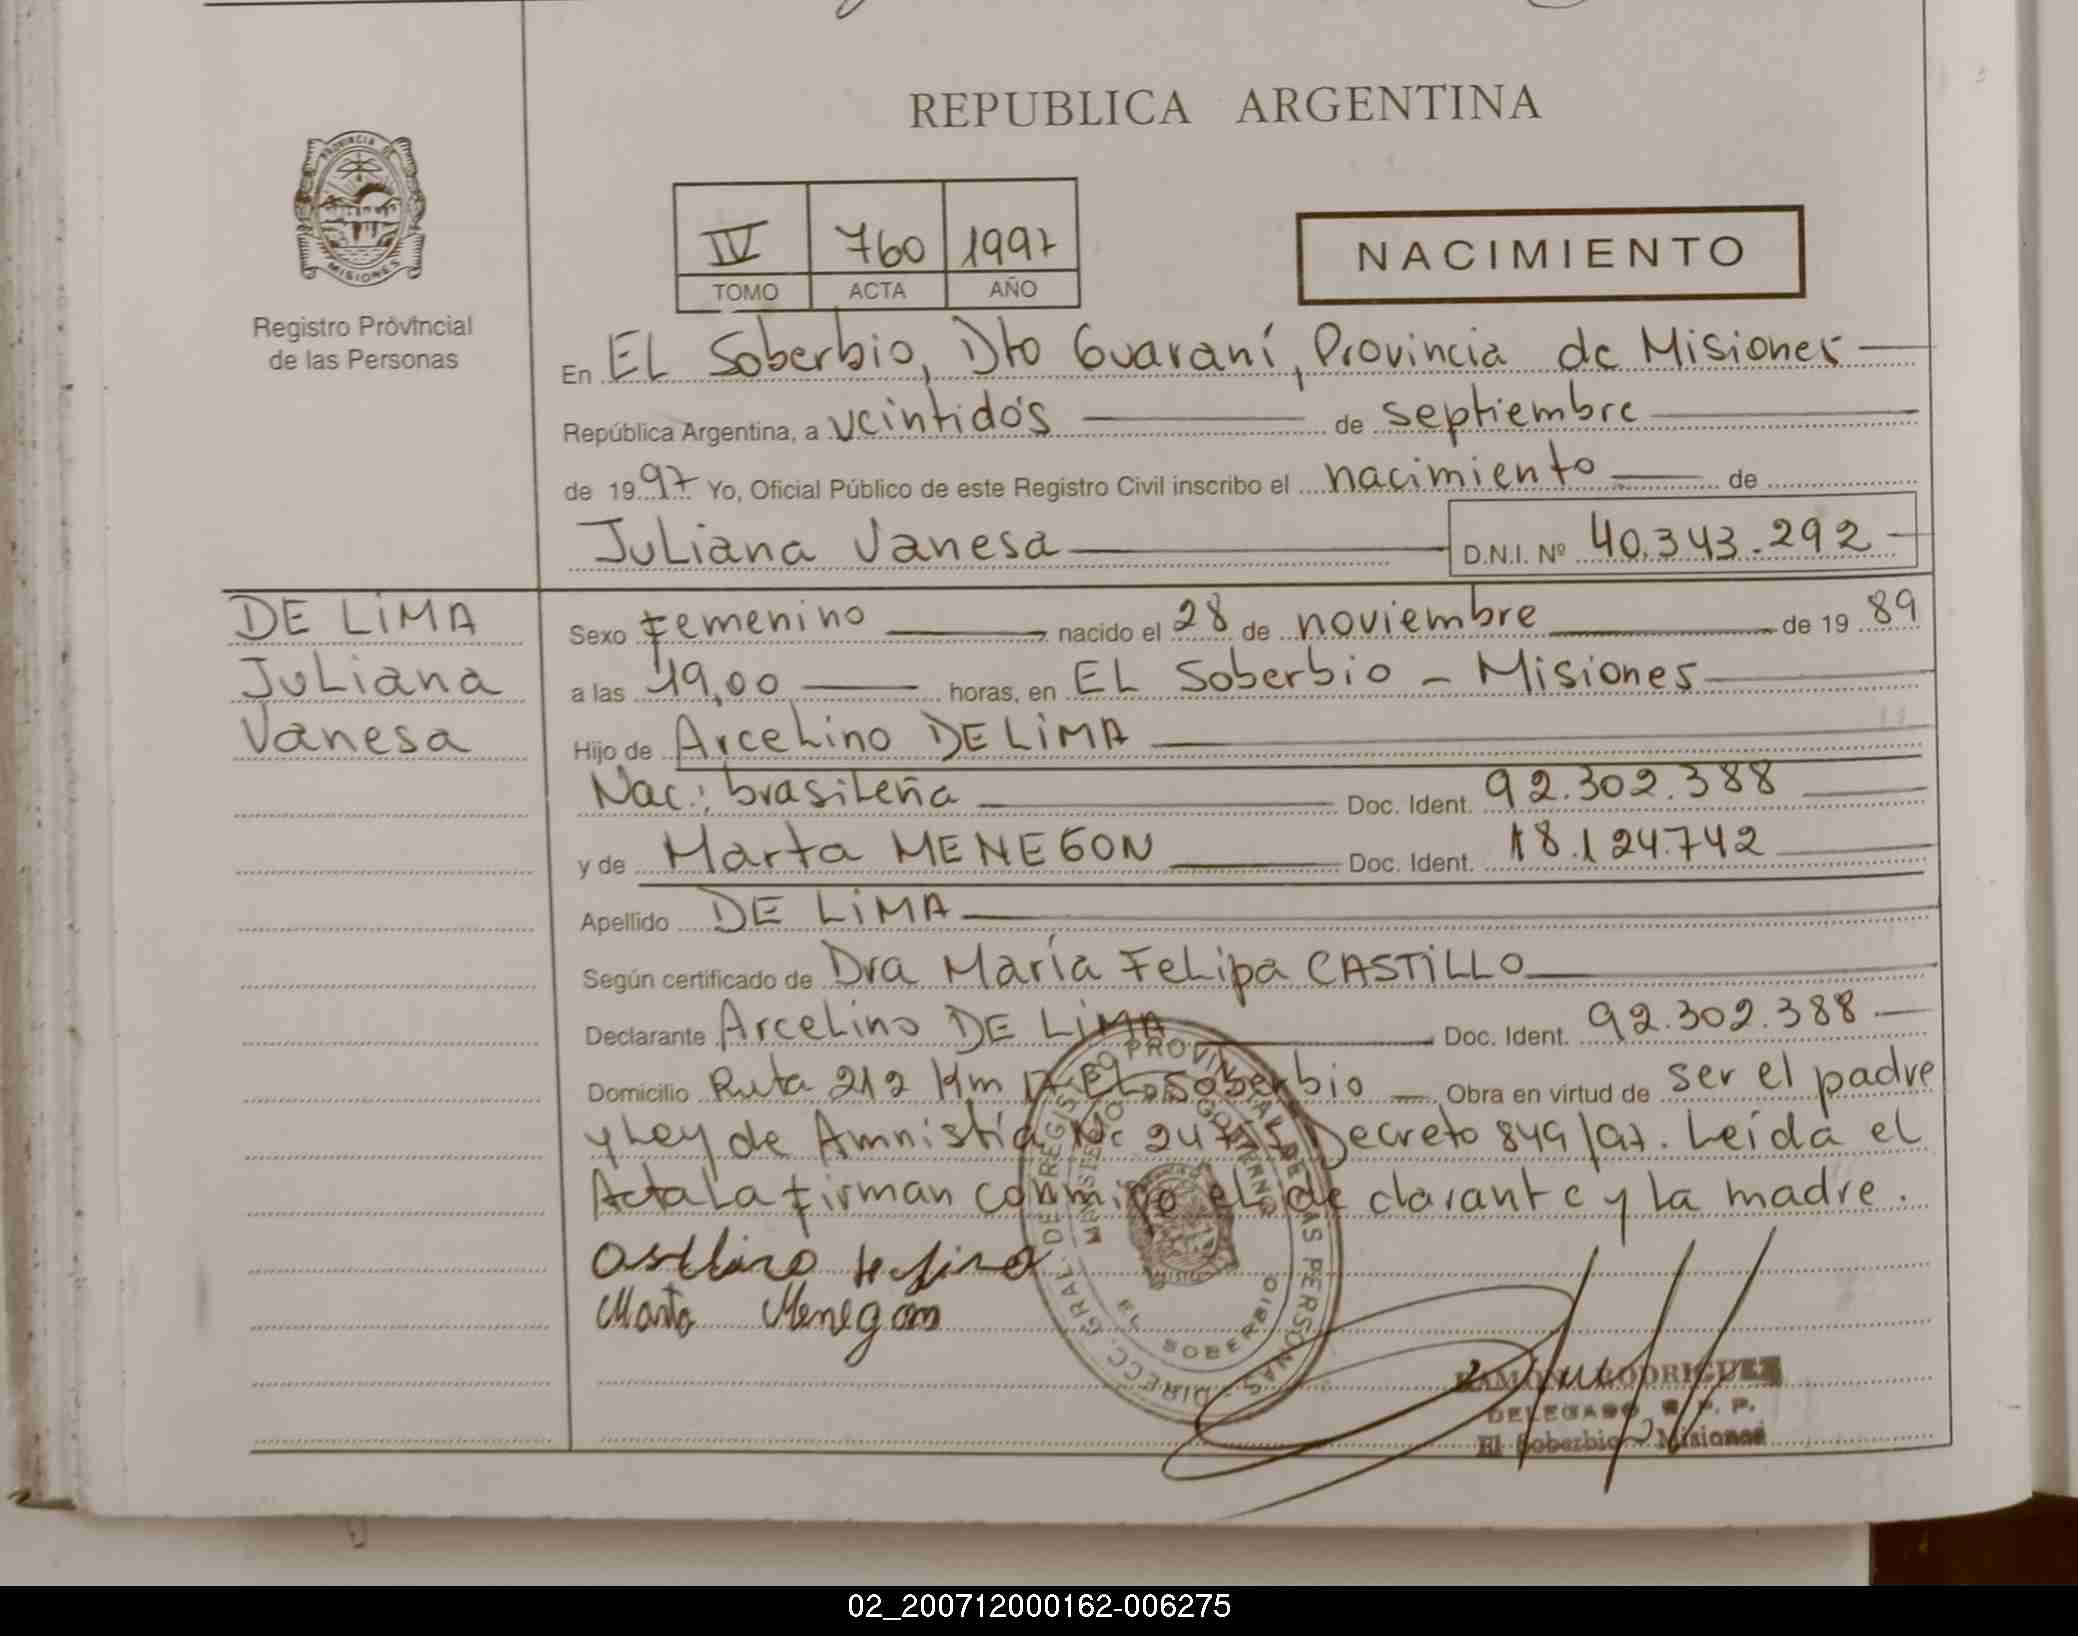 REPUBLICA ARGENTINA
PROVINCIA DE
MISIONES
Registro Provincial
de las Personas
IV 760 1997
TOMO ACTA AÑO
NACIMIENTO
En EL Soberbio, Dto Guaraní, Provincia de Misiones
República Argentina, a veintidós de septiembre
de 1997 Yo, Oficial Público de este Registro Civil inscribo el nacimiento de
Juliana Vanesa D.N.I. Nº 40.343.292
DE LiMA
Juliana
Vanesa
Sexo Femenino nacido el 28 de noviembre de 1989
a las 19,00 horas, en EL Soberbio - Misiones
Hijo de Arcelino DE LiMA
Nac.: brasileña Doc. Ident. 92.302.388
y de Marta MENEGON Doc. Ident. 18.124.742
Apellido DE LiMA
Según certificado de Dra María Felipa CASTiLLO
Declarante Arcelino DE LiMA Doc. Ident. 92.302.388
Domicilio Ruta 212 Km EL Soberbio Obra en virtud de ser el padre
y Ley de Amnistía Decreto 849/97. Leída el
Acta La firman conmigo el declarante y la madre.
Marta Menegon
DIRECC. GRAL. DE REGISTRO PROVINCIAL DE LAS PERSONAS
GOBIERNO
SOBERBIO
RAMON RODRIGUEZ
DELEGADO R. P. P.
El Soberbio - Misiones
02_200712000162-006275